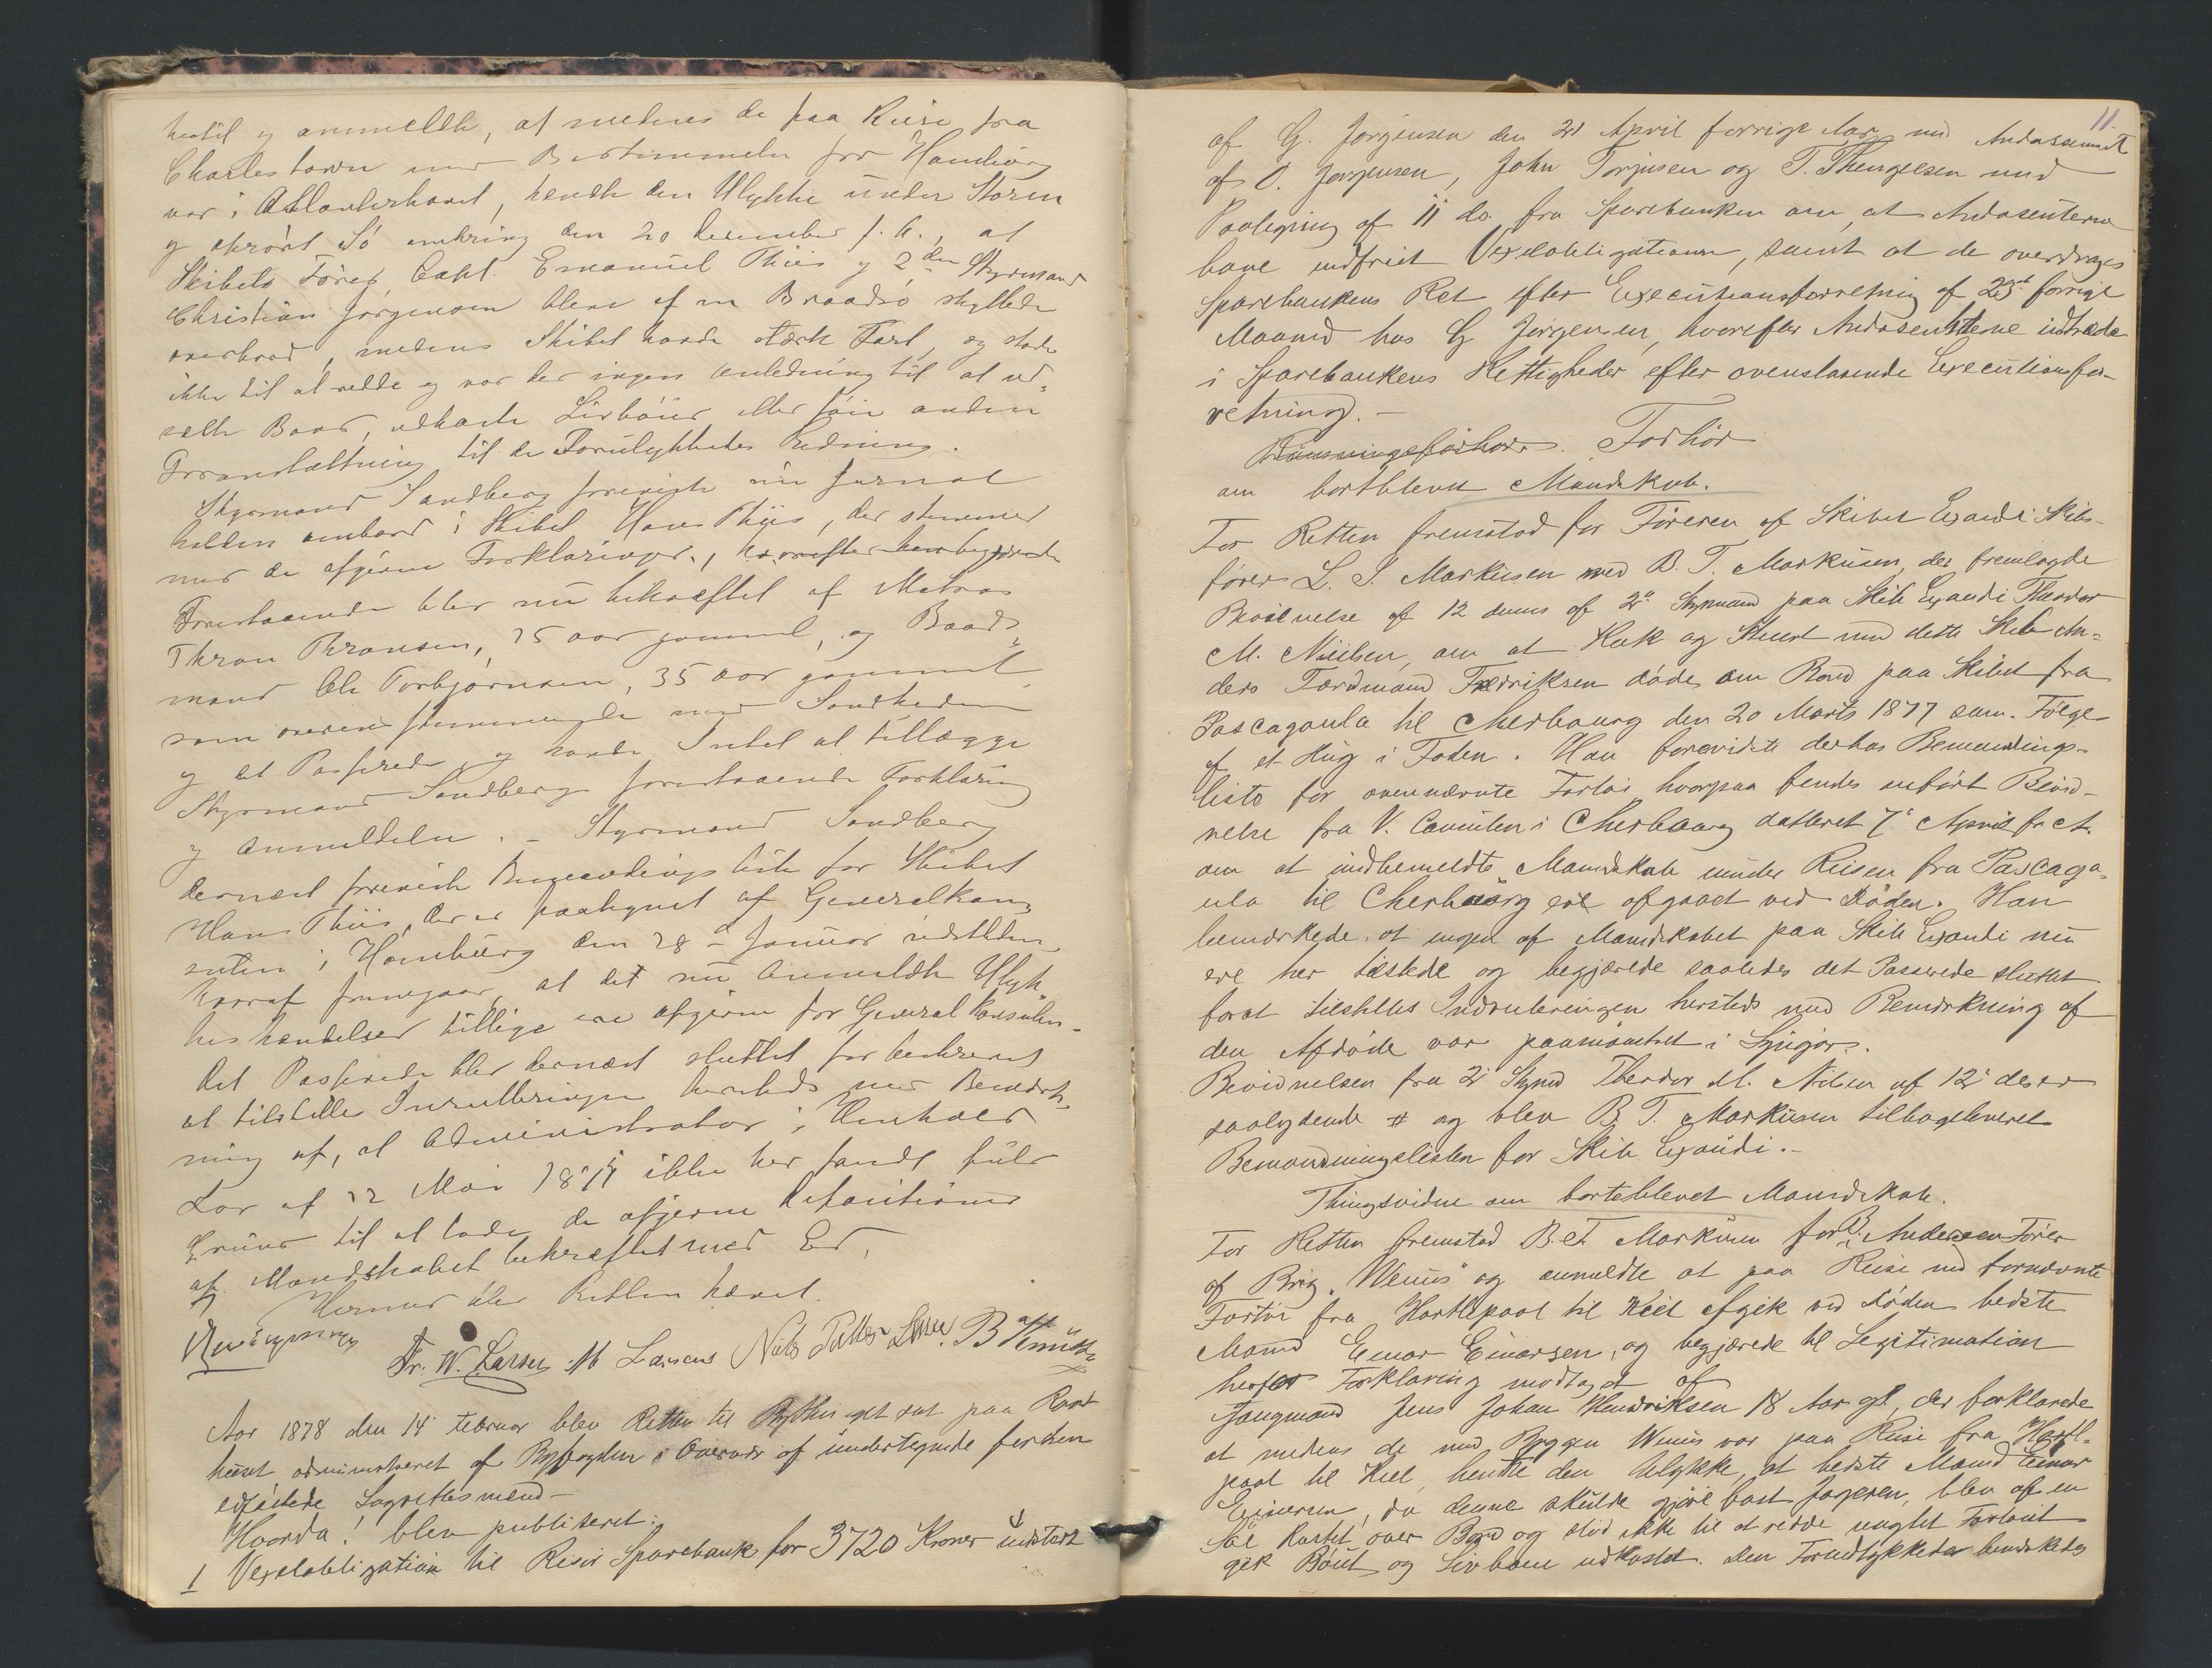 hertil og anmeldte, at medens de paa Reise fra
Charlestown med Bestemmelse for Hamburg
var i Atlanterhavet, hendte den Ulykke under Storm
og oprørt Sö omkring den 20 December f. A., at
Skibets Förer, Capt. Emanuel Thiis og 2den Styrmand
Christian Jörgensen blev af en Braadsö skyllede
overbord, medens Skibet havde stærk Fart, og stode
ikke til at redde og var der ingen Anledning til at ud-
sætte Baad, udkaste Livböier eller föie anden
Foranstaltning til de Forulykkedes Redning.
Styrmand Sandberg foreviste nu Jurnal
holden ombord i Skibet Hans Thiis, der stemmer
med de afgivne Forklaringer.
Forestaaende blev nu bekræftet af Matros
Thron Thronsen, 25 aar gammel, og Baads-
mand Ole Torbjørnsen, 35 aar gammel
som overensstemmende med Sandheden
og det Passerede, og havde Intet at tillægge
Styrmand Sandbergs forestaaende Forklaring
og Anmeldelse. – Styrmand Sandberg
dernæst foreviste Bemandingsliste for Skibet
Hans Thiis, der er paategnet af Generalkon-
sulen i Hamburg den 28de Januar sidstleden
hvoraf fremgaar, at det nu Anmeldte Ulyk-
keshændelser tillige ere afgivne for General Konsulen.
Det Passerede blev dernæst sluttet for beskrevet
at tilstilles Inrulleringen hersteds med Bemærk-
ning af, at Administrator i Henhold
Lov af 22 Mai 1875 ikke her fandt fuld
Grund til at lade de afgivne Depositioner
af Mandskabet bekræftet med Ed.
Hermed blev Retten hævet.
Fr. W. Larsen M Larsens Niels Petter Larsen B Knudsen
Aar 1878 den 14 Februar blev Retten til Bythinget sat paa Raad-
huset administreret af Byfogden i Overvær af undertegnede forhen
edfæstede Lagrettesmænd –
Hvorda! blev publiseret:
1 Vexelobligation til Risör Sparebank for 3720 Kroner udstedt
11.
af G. Jörgensen den 21 April forrige Aar med Andossement
af O. Jörgensen, John Torjusen og T. Thengelsen med
Paategning af 11 ds. fra Sparebanken om, at Andosenterne
have indfriet Vexelobligationen, samt at de overdrages
Sparebankens Ret efter Executionsforretning af 23de forrige
Maaned hos G Jörgensen, hvorefter Andosenterne indtræde
i Sparebankens Rettigheder efter ovenstaaende Executionsfor-
retning. –
Forhör
om bortbleven Mandskab.
For Retten fremstod for Föreren af Skibet Exaudi Skibs-
förer L. S. Markusen med B. T. Markusen, der fremlagde
Bevidnelse af 12 dennes af 2d Styrmand paa Skib Exaudi Theodor
M. Nielsen, om at Kok og Stuert med dette Skib An-
ders Tordmand Fredriksen döde om Bord paa Skibet fra
Pascagoula til Cherbourg den 20 Marts 1877 som Fölge
af et Hug i Foden. Han foreviste derhos Bemandings-
liste for ovennævnte Fartöi hvorpaa findes anfört Bevid-
nelse fra V. Consulen i Cherbourg datteret 7 April f. A.
om at indbemeldte Mandskab under Reisen fra Pascago-
ula til Cherbourg ere afgaaet ved Döden. Han
bemærkede, at ingen af Mandskabet paa Skib Exaudi nu
ere her tilstede og begjærede saaledes det Passerede sluttet
forat tilstilles Indrulleringen hersteds med Bemærkning af
den Afdöde var paamönstret i Lyngör.
Bevidnelsen fra 2d Stymd Theodor M. Nilsen af 12 ds er
saalydende # og blev B T. Markusen tilbageleveret
Bemandningslisten for Skib Exaudi. –
Thingsvidne om bortblevet Mandskab.
For Retten fremstod B. T. Markusen for B. Andersen Förer
af Brig „Wenus" og anmeldte at paa Reise med fornævnte
Fartöi fra Hartlepool til Kiel afgik ved Döden bedste
Mand Einar Einarsen, og begjærede til Legitimation
herfor Forklaring modtaget af
Jungmand Jens Johan Hendriksen 18 Aar gl, der forklarede
at medens de med Briggen Wenus var paa Reise fra Hartl-
pool til Kiel, hendte den Ulykke, at bedste Mand Einar
Einersen, da denne skulde gjöre fast Jageren, blev af en
Sö kastet over Bord og stod ikke til at redde uagtet Fartöiet
gik Bout og Livböie udkastet. Den Forulykkede bemærkedes